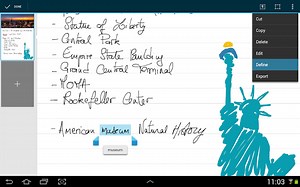 DONE
- Statue of Liberty
- Central Park
- Empire State Building
- Grand Central Terminal
- MOMA
- Rockefeller Center
- American Museum Natural History
Cut
Copy
Delete
Edit
Define
Export
11:03